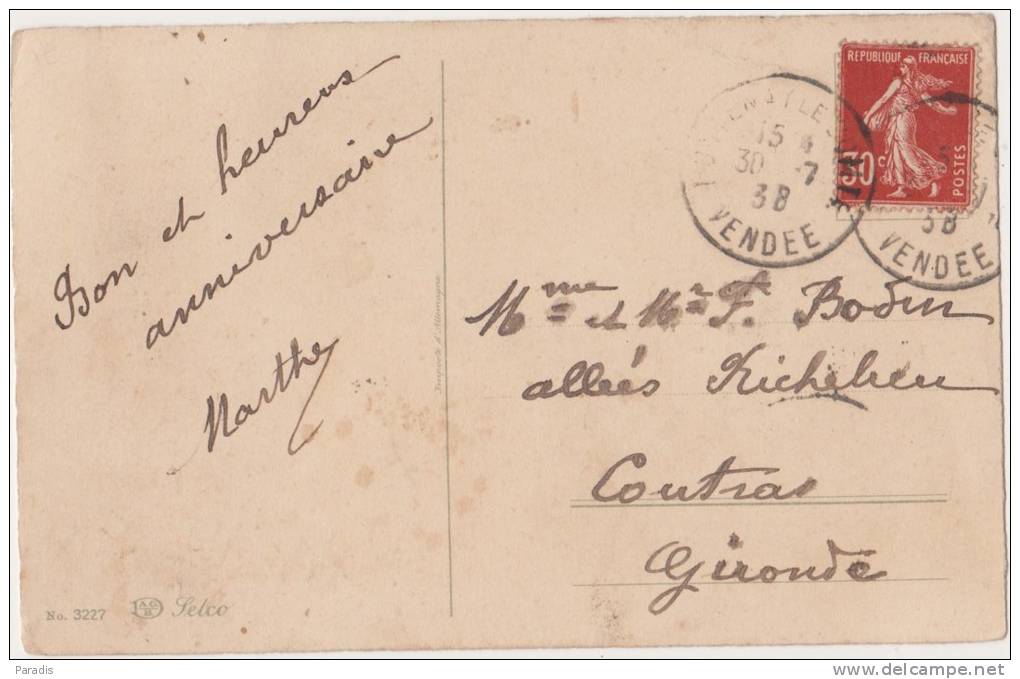 Bon et heureus
anniversaire
Marthe
RÉPUBLIQUE FRANÇAISE
30c
POSTES
15
30 -7
38
VENDEE
38
VENDEE
Mme et Mr F. Bodin
allées Richelieu
Coutras
Gironde
Importé d'Allemagne
No. 3227 AGB Selco
Paradis
www.delcampe.net